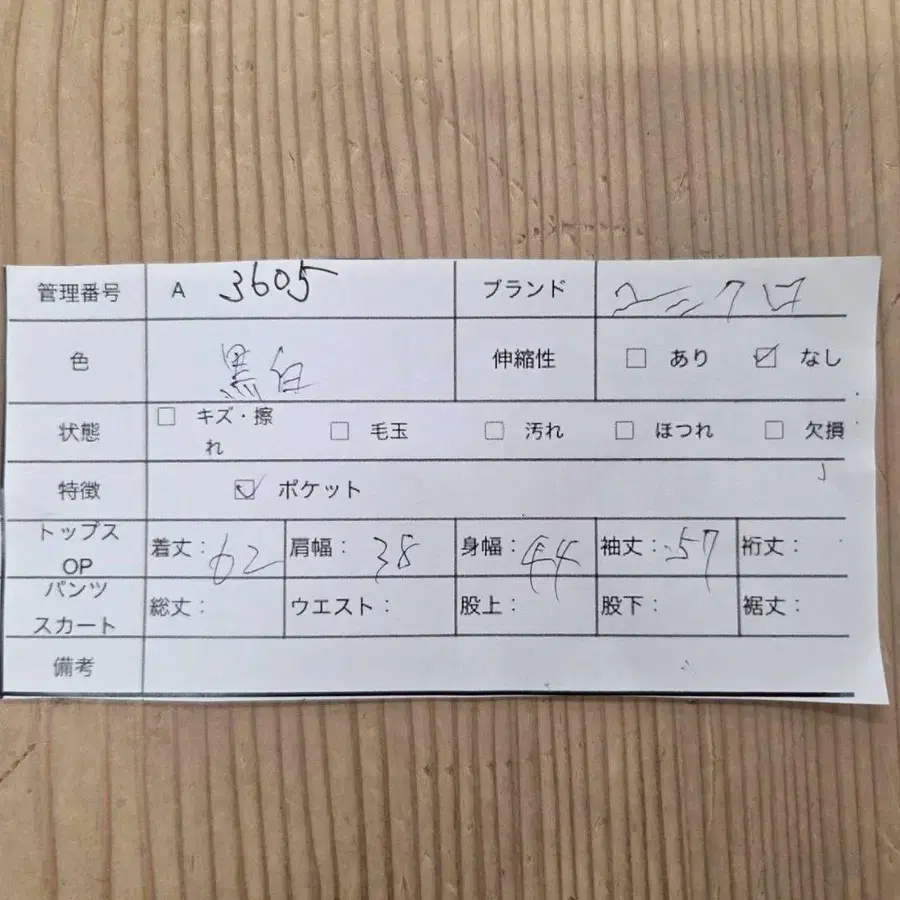 管理番号 A 3605 ブランド ユニクロ
色 黒白 伸縮性 □ あり ☑ なし
状態 □ キズ・擦れ □ 毛玉 □ 汚れ □ ほつれ □ 欠損
特徴 ☑ ポケット
トップス OP 着丈：62 肩幅：38 身幅：44 袖丈：57 裄丈：
パンツ スカート 総丈： ウエスト： 股上： 股下： 裾丈：
備考